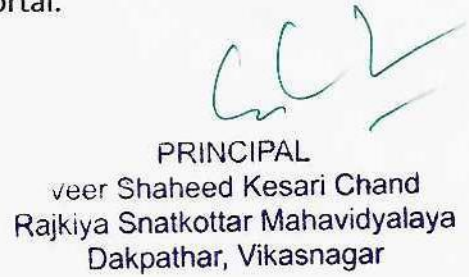 ortal.
PRINCIPAL
veer Shaheed Kesari Chand
Rajkiya Snatkottar Mahavidyalaya
Dakpathar, Vikasnagar